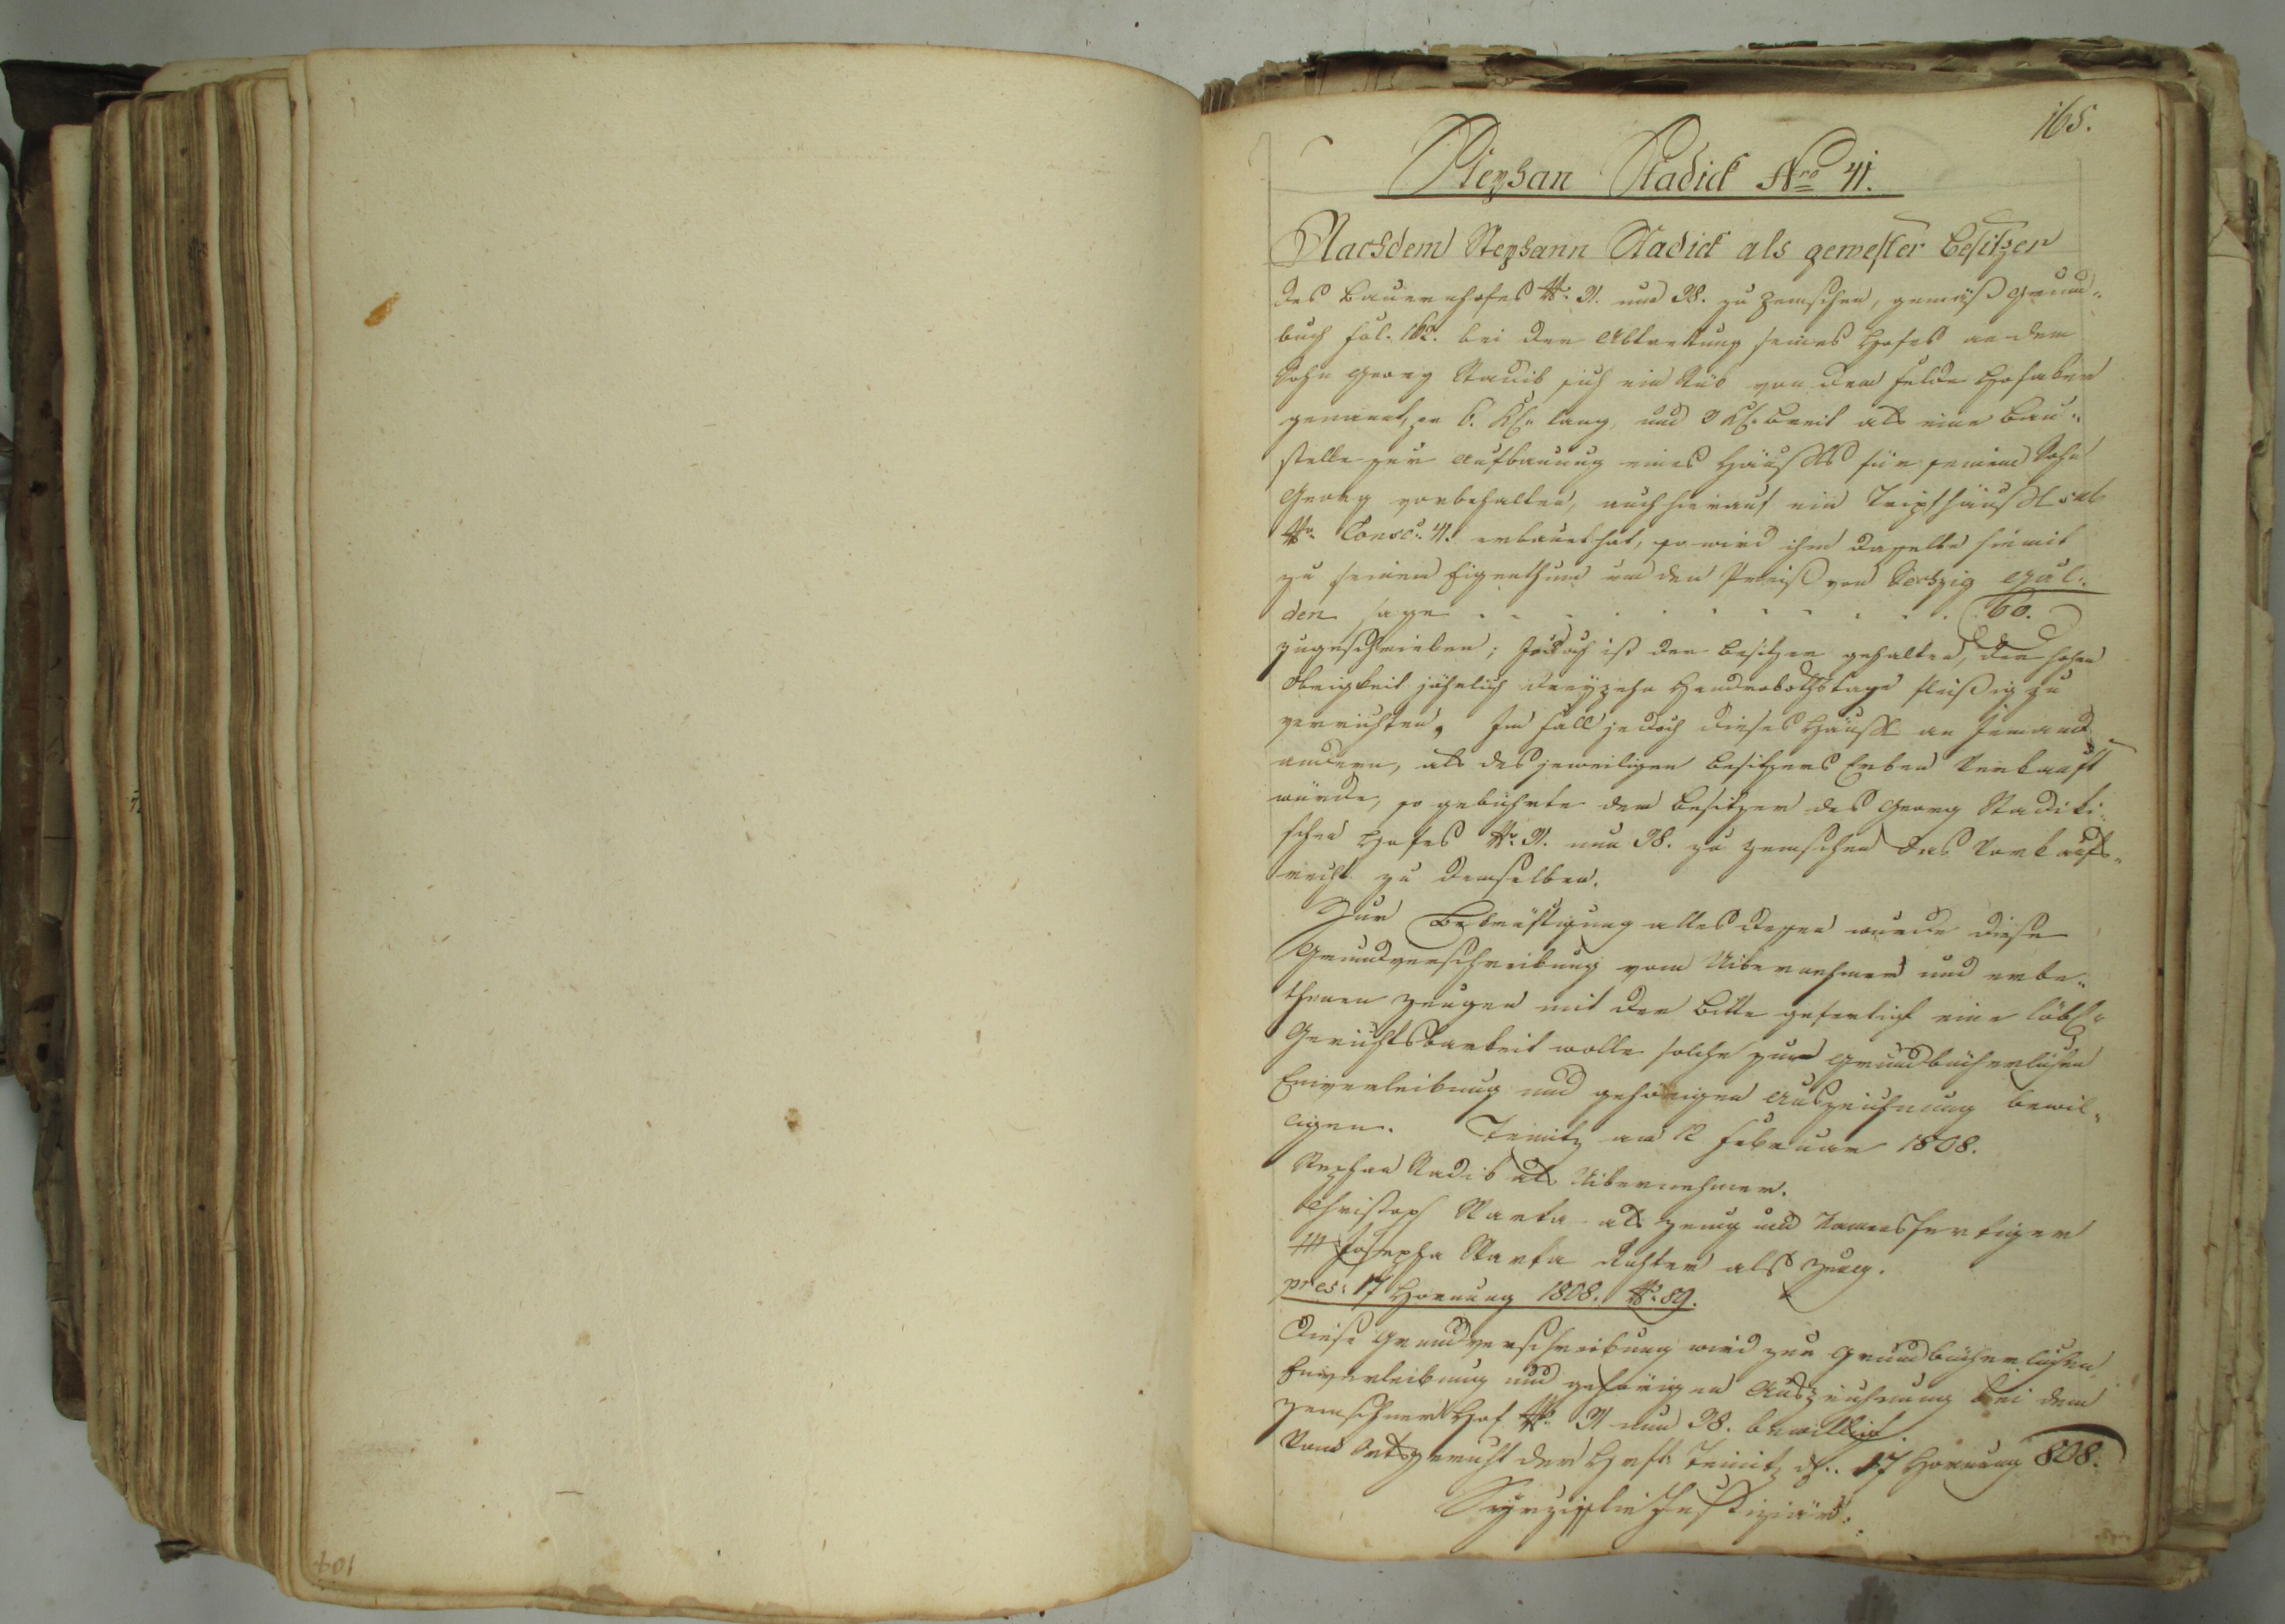 165.
Stephan Stadick Nro 41.
Nachdem Stephann Stadick als gewester Besitzer
des Bauernhofes No. 31. und 38. zu Zemschen, gemäß Grund-
buch fol. 162. bei der Abtrettung seines Hofes an den
Sohn Georg Stadik sich ein Stück von dem Felde
genannt, pr 6. Kl. lang, und 3 Kl. breit als eine Bau-
stelle zur Aufbauung eines Häußls für seinen Sohn
Georg vorbehalten, auch hierauf ein Häußl sub
No. Consc. 41. erbauet hat, so wird ihm dasselbe hiemit
zu seinem Eigenthum um den Preiß von Sechzig Gul-
den sage . . . . . . . . . . 60.
zugeschrieben; Jedoch ist der Besitzer gehalten, der hohen
Obrigkeit jährlich dreyzehn Handrobothstage fleißig zu
verrichten. Im Fall jedoch dieses Häußl an Jemand
andern, als des jeweiligen Besitzers Erben verkauft
würde, so gebührte dem Besitzer des Georg Stadiki-
schen Hofes No. 31. und 38. zu Zemschen das Vorkaufs-
recht zu demselben.
Zur Bekräftigung alles dessen wurde diese
Grundverschreibung vom Uibernehmer und erbe-
thenen Zeugen mit der Bitte gefertigt eine löbl.
Gerichtsbarkeit wolle solche zur grundbücherlichen
Einverleibung und gehörigen Auszeichnung bewil-
ligen. Teinitz am 12 Februar 1808.
Stephan Stadik als Uibernehmer.
Christoph Marka als Zeug und Namensfertiger
+++ Josepha Marka Richter als Zeug.
pres: 17 Hornung 1808. No. 89.
Diese Grundverschreibung wird zur grundbücherlichen
Einverleibung und gehörigen Auszeichnung bei dem
Zemschner Hof No. 31 und 38. bewilligt.
Vom Ortsgericht der Hrft. Teinitz d. 17 Hornung 808.
Justiziär.
104